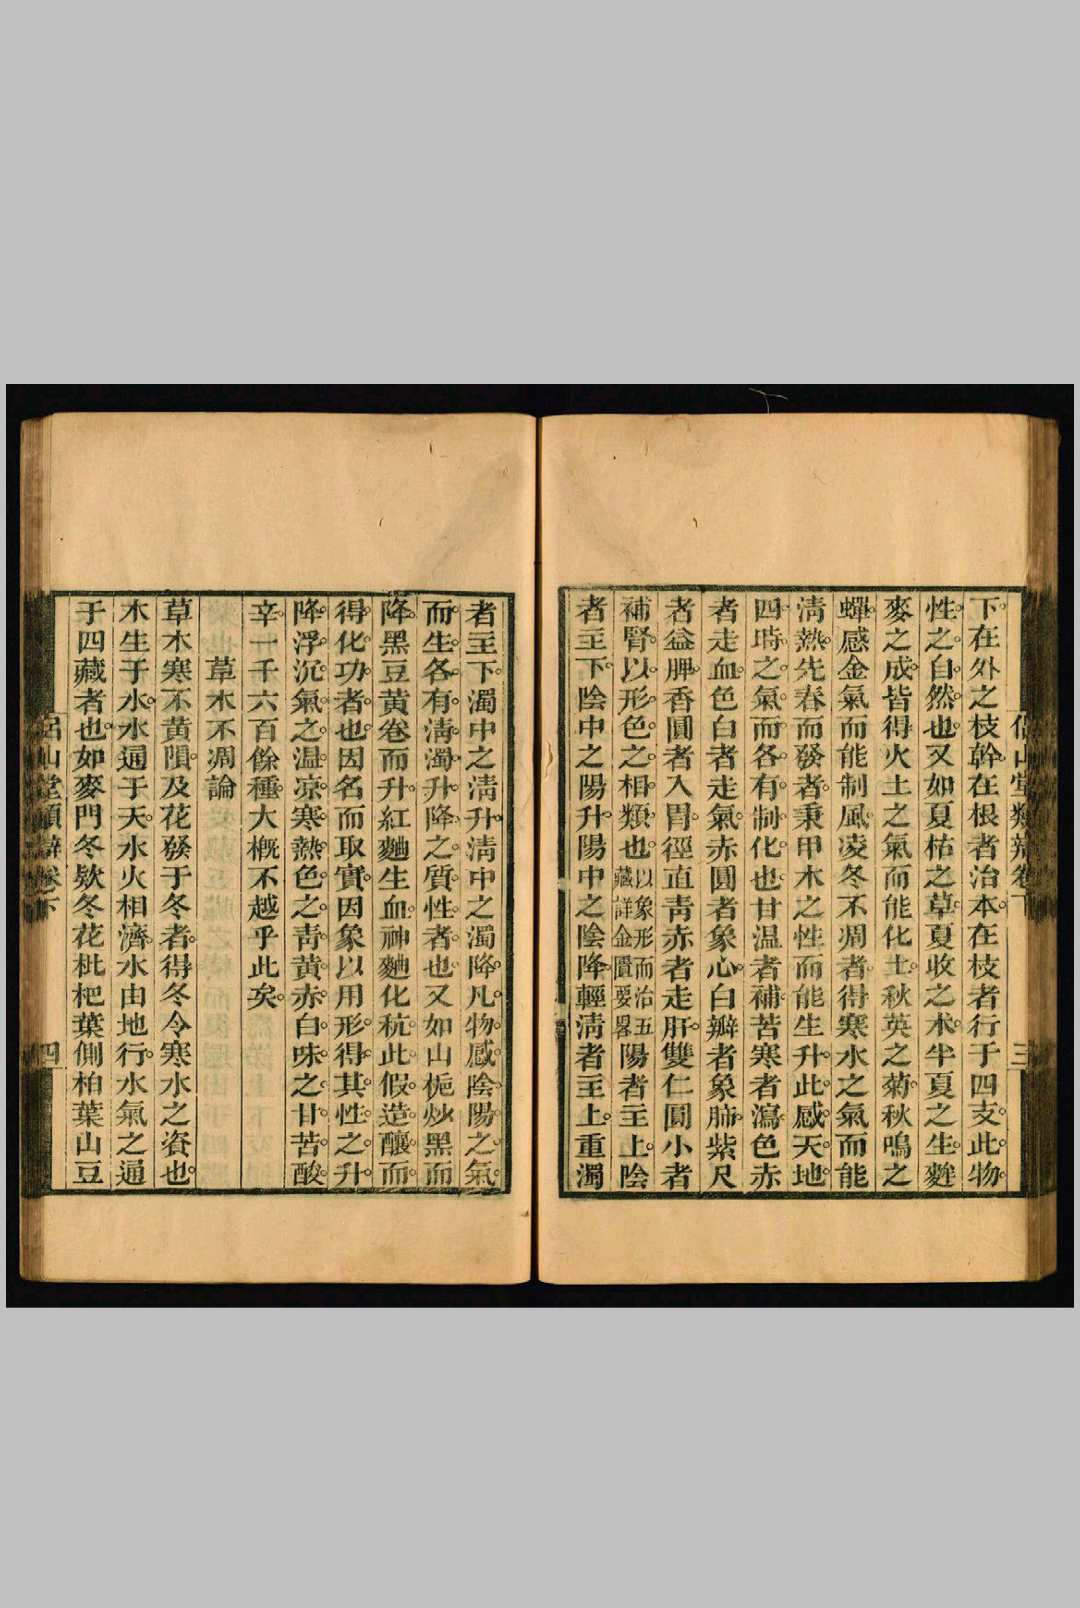 侶山堂類辯卷下 三
下在外之枝幹在根者治本在枝者行于四支此物
性之自然也又如夏枯之草夏收之朮半夏之生蕤
麥之成皆得火土之氣而能化土秋英之菊秋鳴之
蟬感金氣而能制風凌冬不凋者得寒水之氣而能
清熱先春而發者秉甲木之性而能生升此感天地
四時之氣而各有制化也甘温者補苦寒者瀉色赤
者走血色白者走氣赤圓者象心白瓣者象肺紫尺
者益脾香圓者入胃徑直青赤者走肝雙仁圓小者
補腎以形色之相類也以象形而治五藏詳金匱要畧陽者至上陰
者至下陰中之陽升陽中之陰降輕清者至上重濁
者至下濁中之清升清中之濁降凡物感陰陽之氣
而生各有清濁升降之質性者也又如山梔炒黑而
降黑豆黄卷而升紅麯生血神麯化秔此假造釀而
得化功者也因名而取實因象以用形得其性之升
降浮沉氣之温凉寒熱色之青黄赤白味之甘苦酸
辛一千六百餘種大槪不越乎此矣
草木不凋論
草木寒不黄隕及花發于冬者得冬令寒水之資也
木生于水水通于天水火相濟水由地行水氣之通
于四藏者也如麥門冬欵冬花枇杷葉側柏葉山豆
侶山堂類辯卷下 四